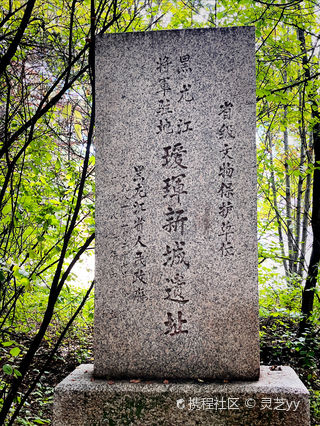 省级文物保护单位
黑龙江
将軍駐地
瑷琿新城遗址
黑龙江省人民政府
携程社区 © 灵芝yy